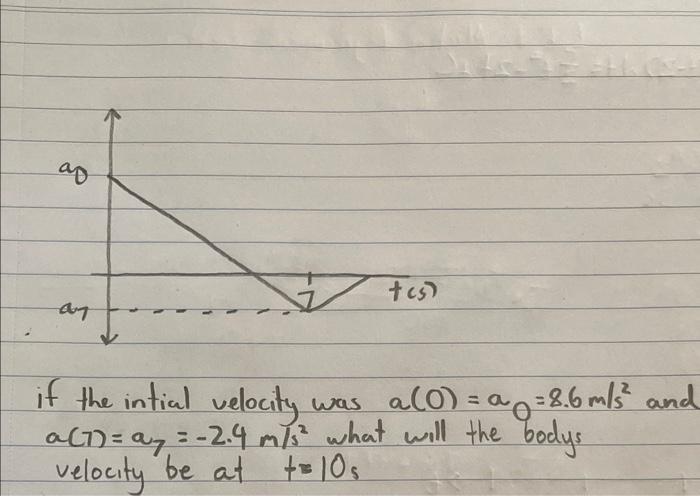 a0
a7
7
t(s)
if the intial velocity was a(0) = a0 = 8.6 m/s² and
a(7) = a7 = -2.4 m/s² what will the bodys
velocity be at t=10s